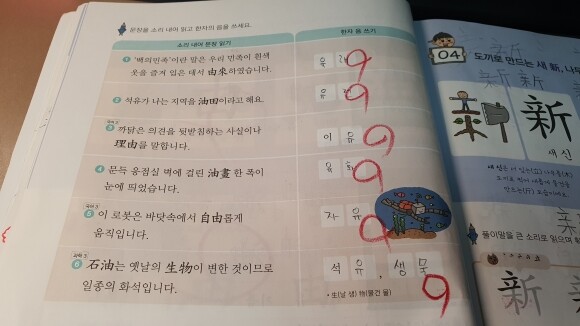 문장을 소리 내어 읽고 한자의 음을 쓰세요.
소리 내어 문장 읽기
한자 음 쓰기
1 '백의민족'이란 말은 우리 민족이 흰색
옷을 즐겨 입은 데서 由來하였습니다.
유
2 석유가 나는 지역을 油田이라고 해요.
유
3 까닭은 의견을 뒷받침하는 사실이나
理由를 말합니다.
이 유
4 문득 응접실 벽에 걸린 油畫 한 폭이
눈에 띄었습니다.
유 화
5 이 로봇은 바닷속에서 自由롭게
움직입니다.
자 유
6 石油는 옛날의 生物이 변한 것이므로
일종의 화석입니다.
석 유, 생 물
• 生(날 생) 物(물건 물)
04
도끼로 만드는 새 新, 나무
新
新
새 신
풀이말을 큰 소리로 읽으며
新 新